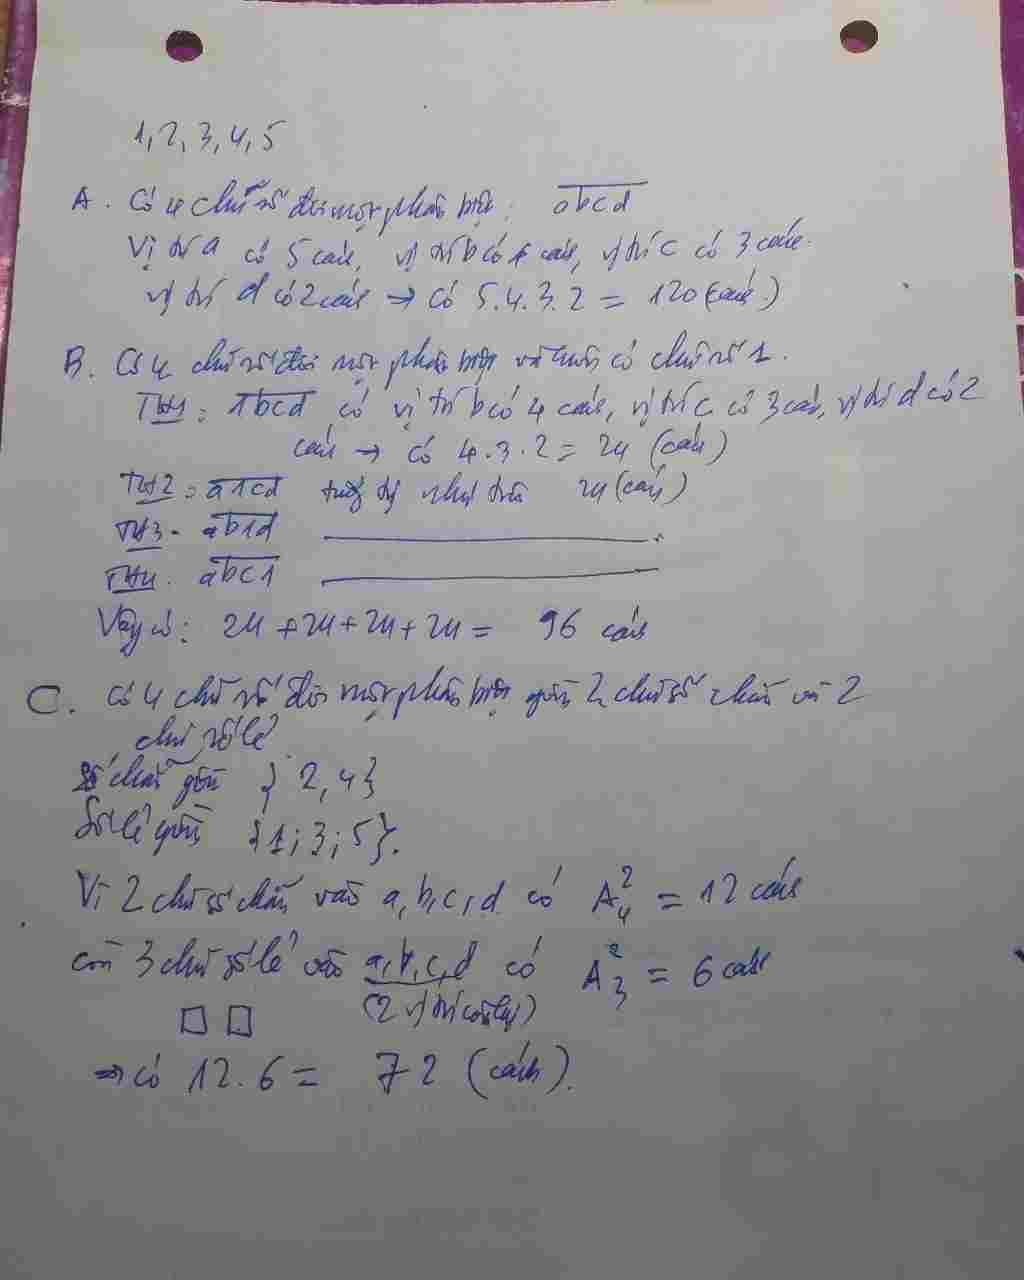 1, 2, 3, 4, 5
A. Có 4 chữ số đôi một phân biệt: abcd
Vị trí a có 5 cách, vị trí b có 4 cách, vị trí c có 3 cách.
vị trí d có 2 cách → có 5.4.3.2 = 120 (cách)
B. Có 4 chữ số đôi một phân biệt và luôn có chữ số 1.
TH1: 1bcd có vị trí b có 4 cách, vị trí c có 3 cách, vị trí d có 2
cách → có 4.3.2 = 24 (cách)
TH2: a1cd tương tự như trên 24 (cách)
TH3. ab1d
TH4. abc1
Vậy có: 24 + 24 + 24 + 24 = 96 cách
C. Có 4 chữ số đôi một phân biệt gồm 2 chữ số chẵn và 2
chữ số lẻ
Số chẵn gồm {2, 4}
Số lẻ gồm {1; 3; 5}.
Vì 2 chữ số chẵn vào a, b, c, d có A₄² = 12 cách
còn 3 chữ số lẻ vào a, b, c, d có A₃² = 6 cách
(2 vị trí còn lại)
⇒ có 12.6 = 72 (cách).